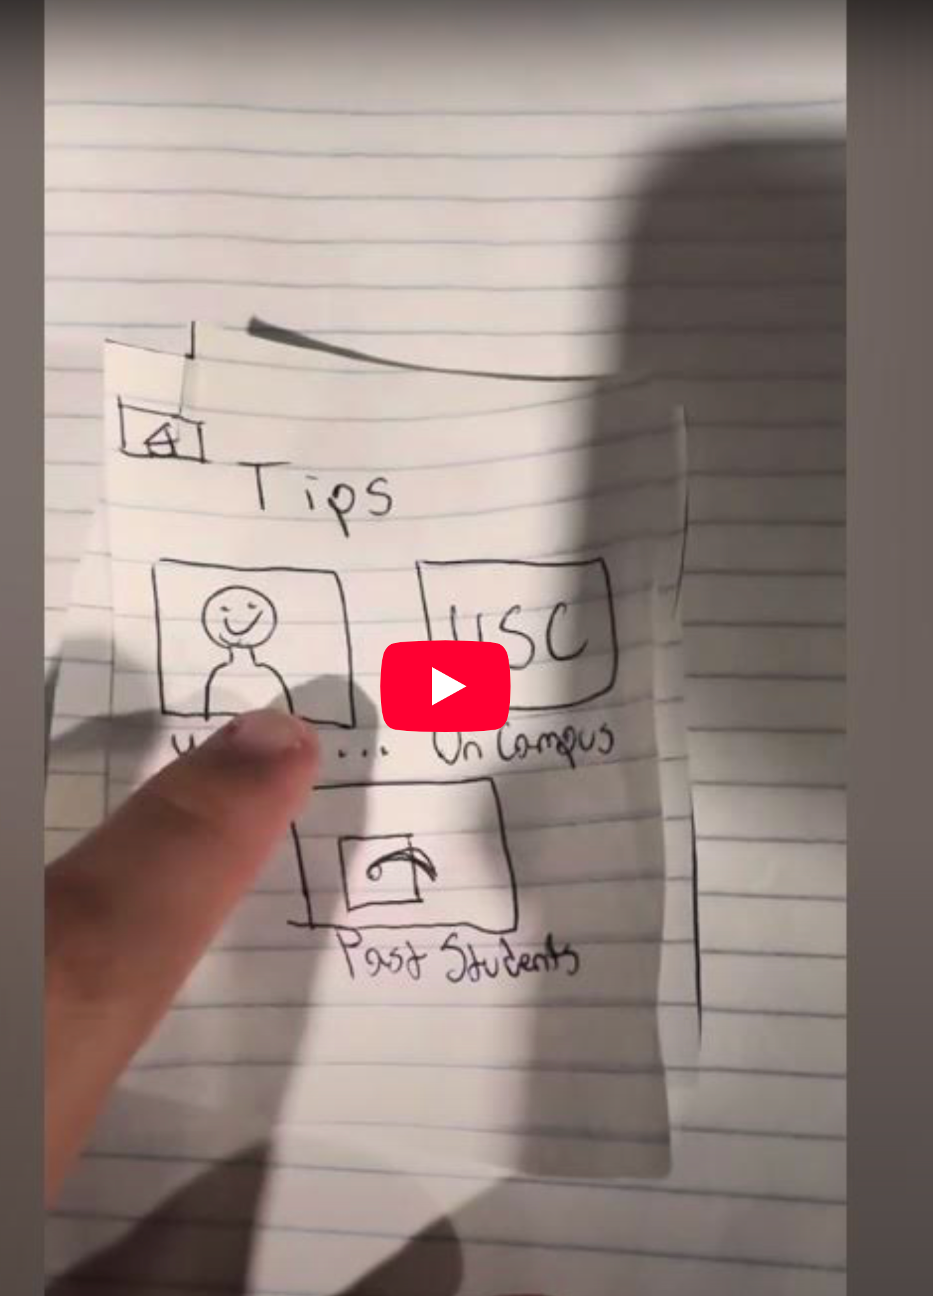 Tips
USC
... On Campus
Past Students